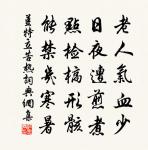 老人氣血少
日夜遭煎煮
點檢槁形骸
能禁幾寒暑
姜特立苦熱詞典網集